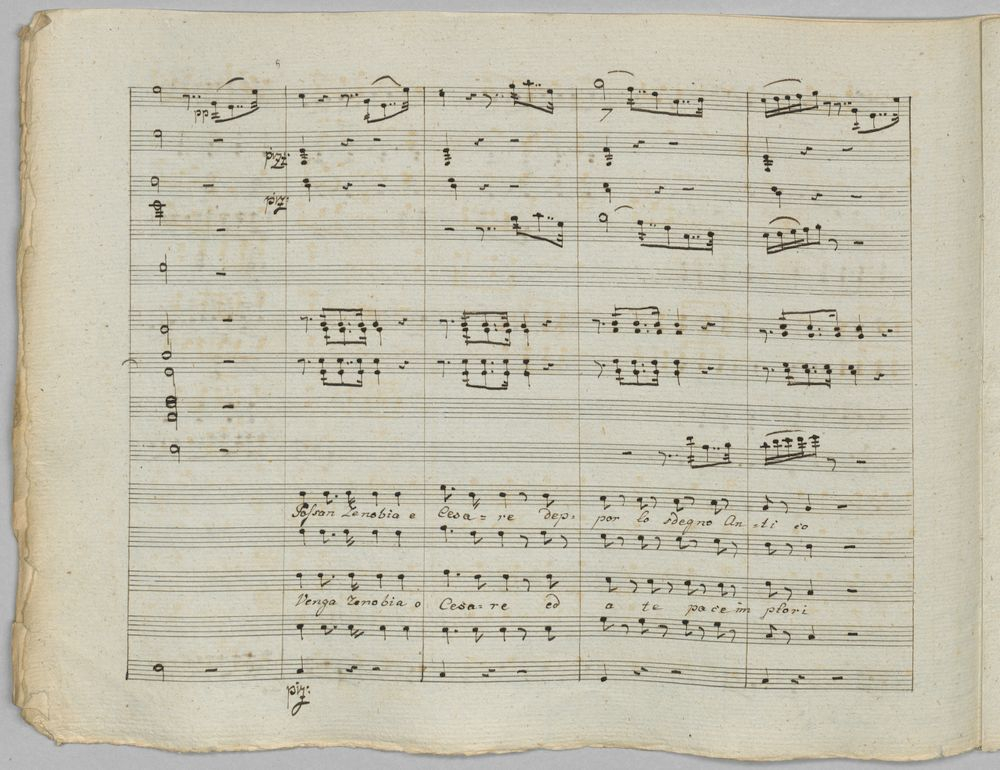 pp
7
pizz:
piz:
Possan Zenobia e Cesa=re dep= por lo sdegno An=ti co
Venga Zenobia o Cesa=re ed a te pace im plori
piz: